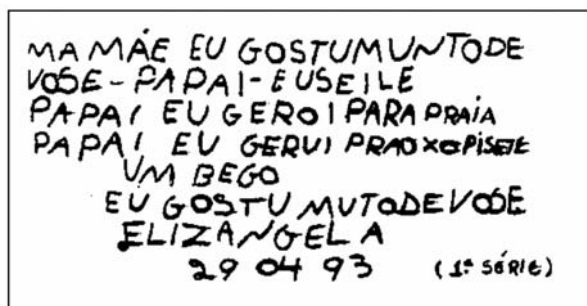 MAMÃE EU GOSTUMUNTODE
VOSE-PAPAI-EUSEILE
PAPAI EU GEROI PARA PRAIA
PAPAI EU GERUI PRAOXOPISETE
UM BEGO
EU GOSTU MUTODEVOSE
ELIZANGELA
29 04 93 (1ª SÉRIE)